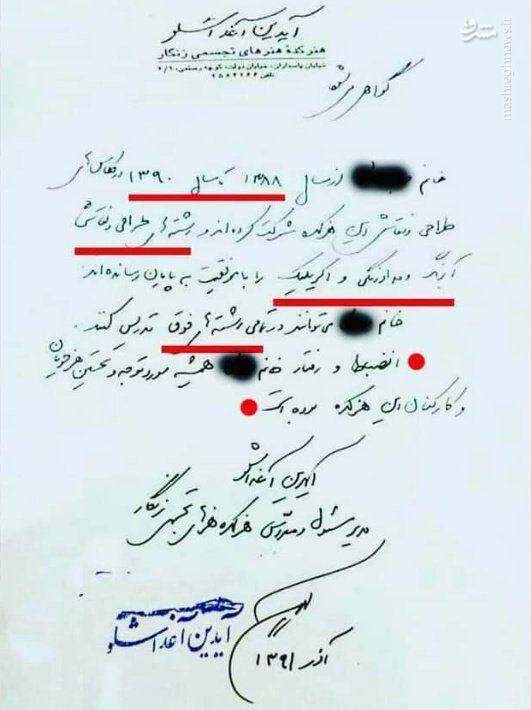 آیدین آغداشلو
هنرکدۀ هنرهای تجسمی زنگار
خیابان پاسداران، خیابان دولت، کوچه رستمی، ۲/۶
تلفن ۲۵۸۴۲۶۶
گواهی می‌شود
خانم از سال ۱۳۸۸ تا سال ۱۳۹۰ در کلاس‌های
طراحی و نقاشی این هنرکده شرکت کرده‌اند و رشته‌های طراحی و نقاشی
آبرنگ و مدادرنگی و اکریلیک را با موفقیت به پایان رسانده‌اند.
خانم می‌توانند در تمامی رشته‌های فوق تدریس کنند.
انضباط و رفتار خانم همیشه مورد توجه و تحسین هنرجویان
و کارکنان این هنرکده بوده است
آیدین آغداشلو
مدیر مسئول و مدرس هنرکده هنرهای تجسمی زنگار
آیدین آغداشلو
آذر ۱۳۹۱
مشرق
mashreghnews.ir